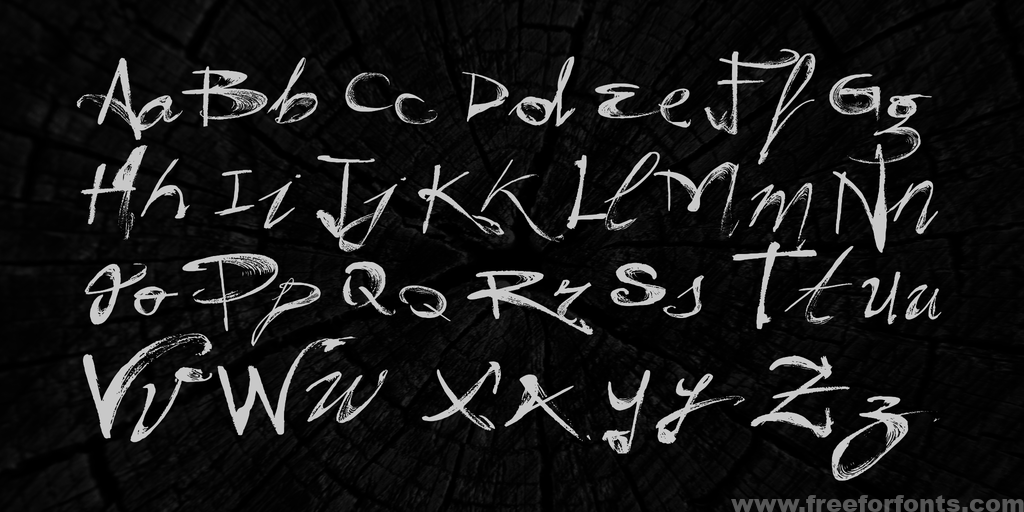 Aa Bb Cc Dd Ee Ff Gg
Hh Ii Jj Kk Ll Mm Nn
Oo Pp Qq Rr Ss Tt Uu
Vv Ww Xx Yy Zz
www.freeforfonts.com